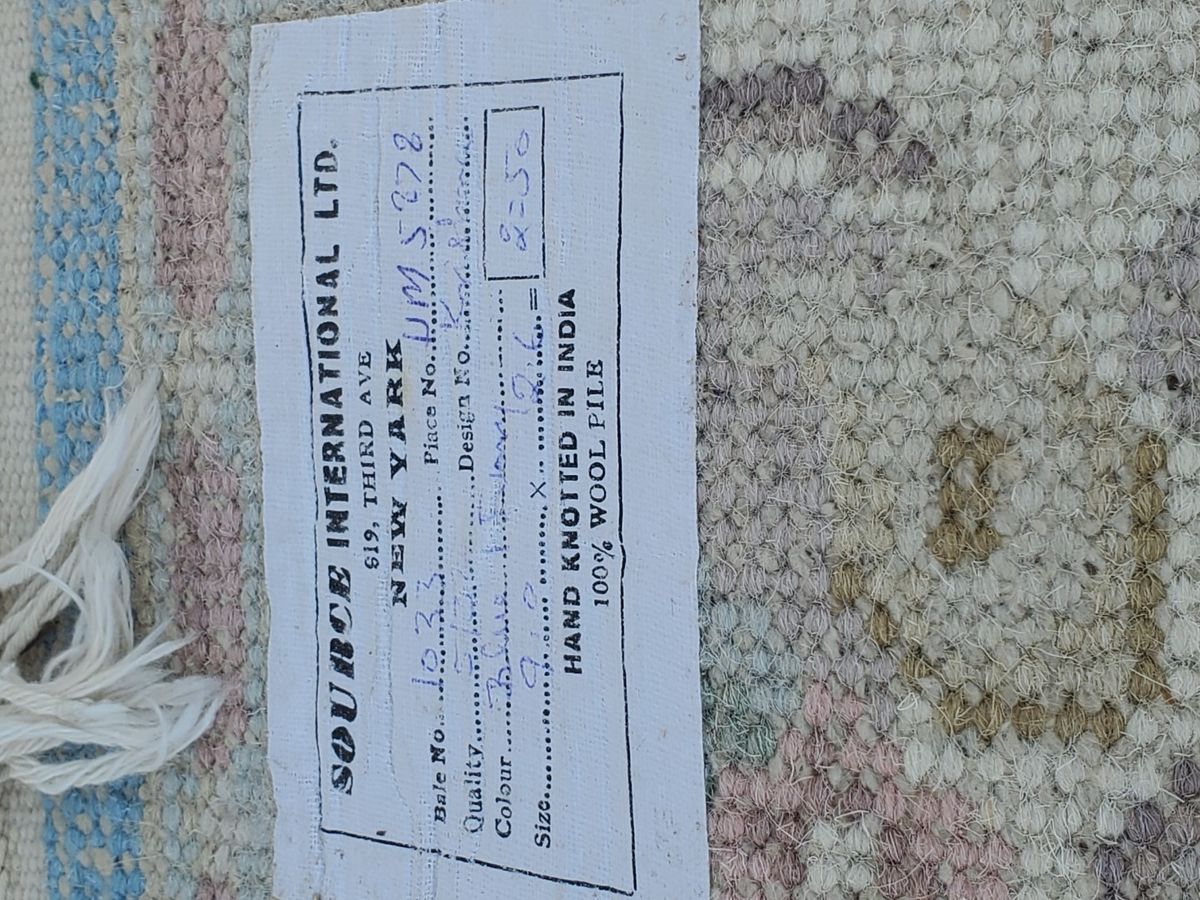 SOURCE INTERNATIONAL LTD.
819, THIRD AVE
NEW YARK
Bale No. 1033 Piace No. UM 5878
Quality Design No.
Colour Blue
Size 9.0 x =
HAND KNOTTED IN INDIA
100% WOOL PILE